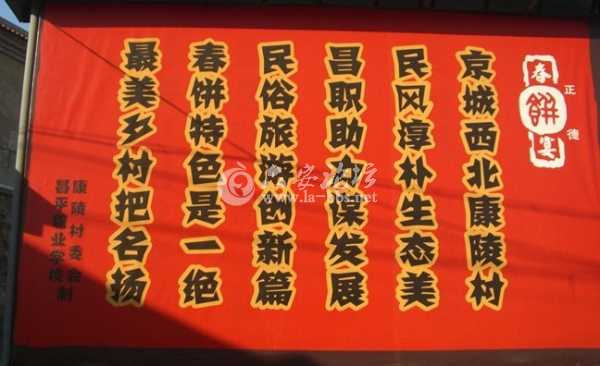 正德
春餅宴
京城西北康陵村
民风淳朴生态美
昌职助力谋发展
民俗旅游创新篇
春饼特色是一绝
最美乡村把名扬
康陵村委会
昌平职业学校制
www.la-bbs.net